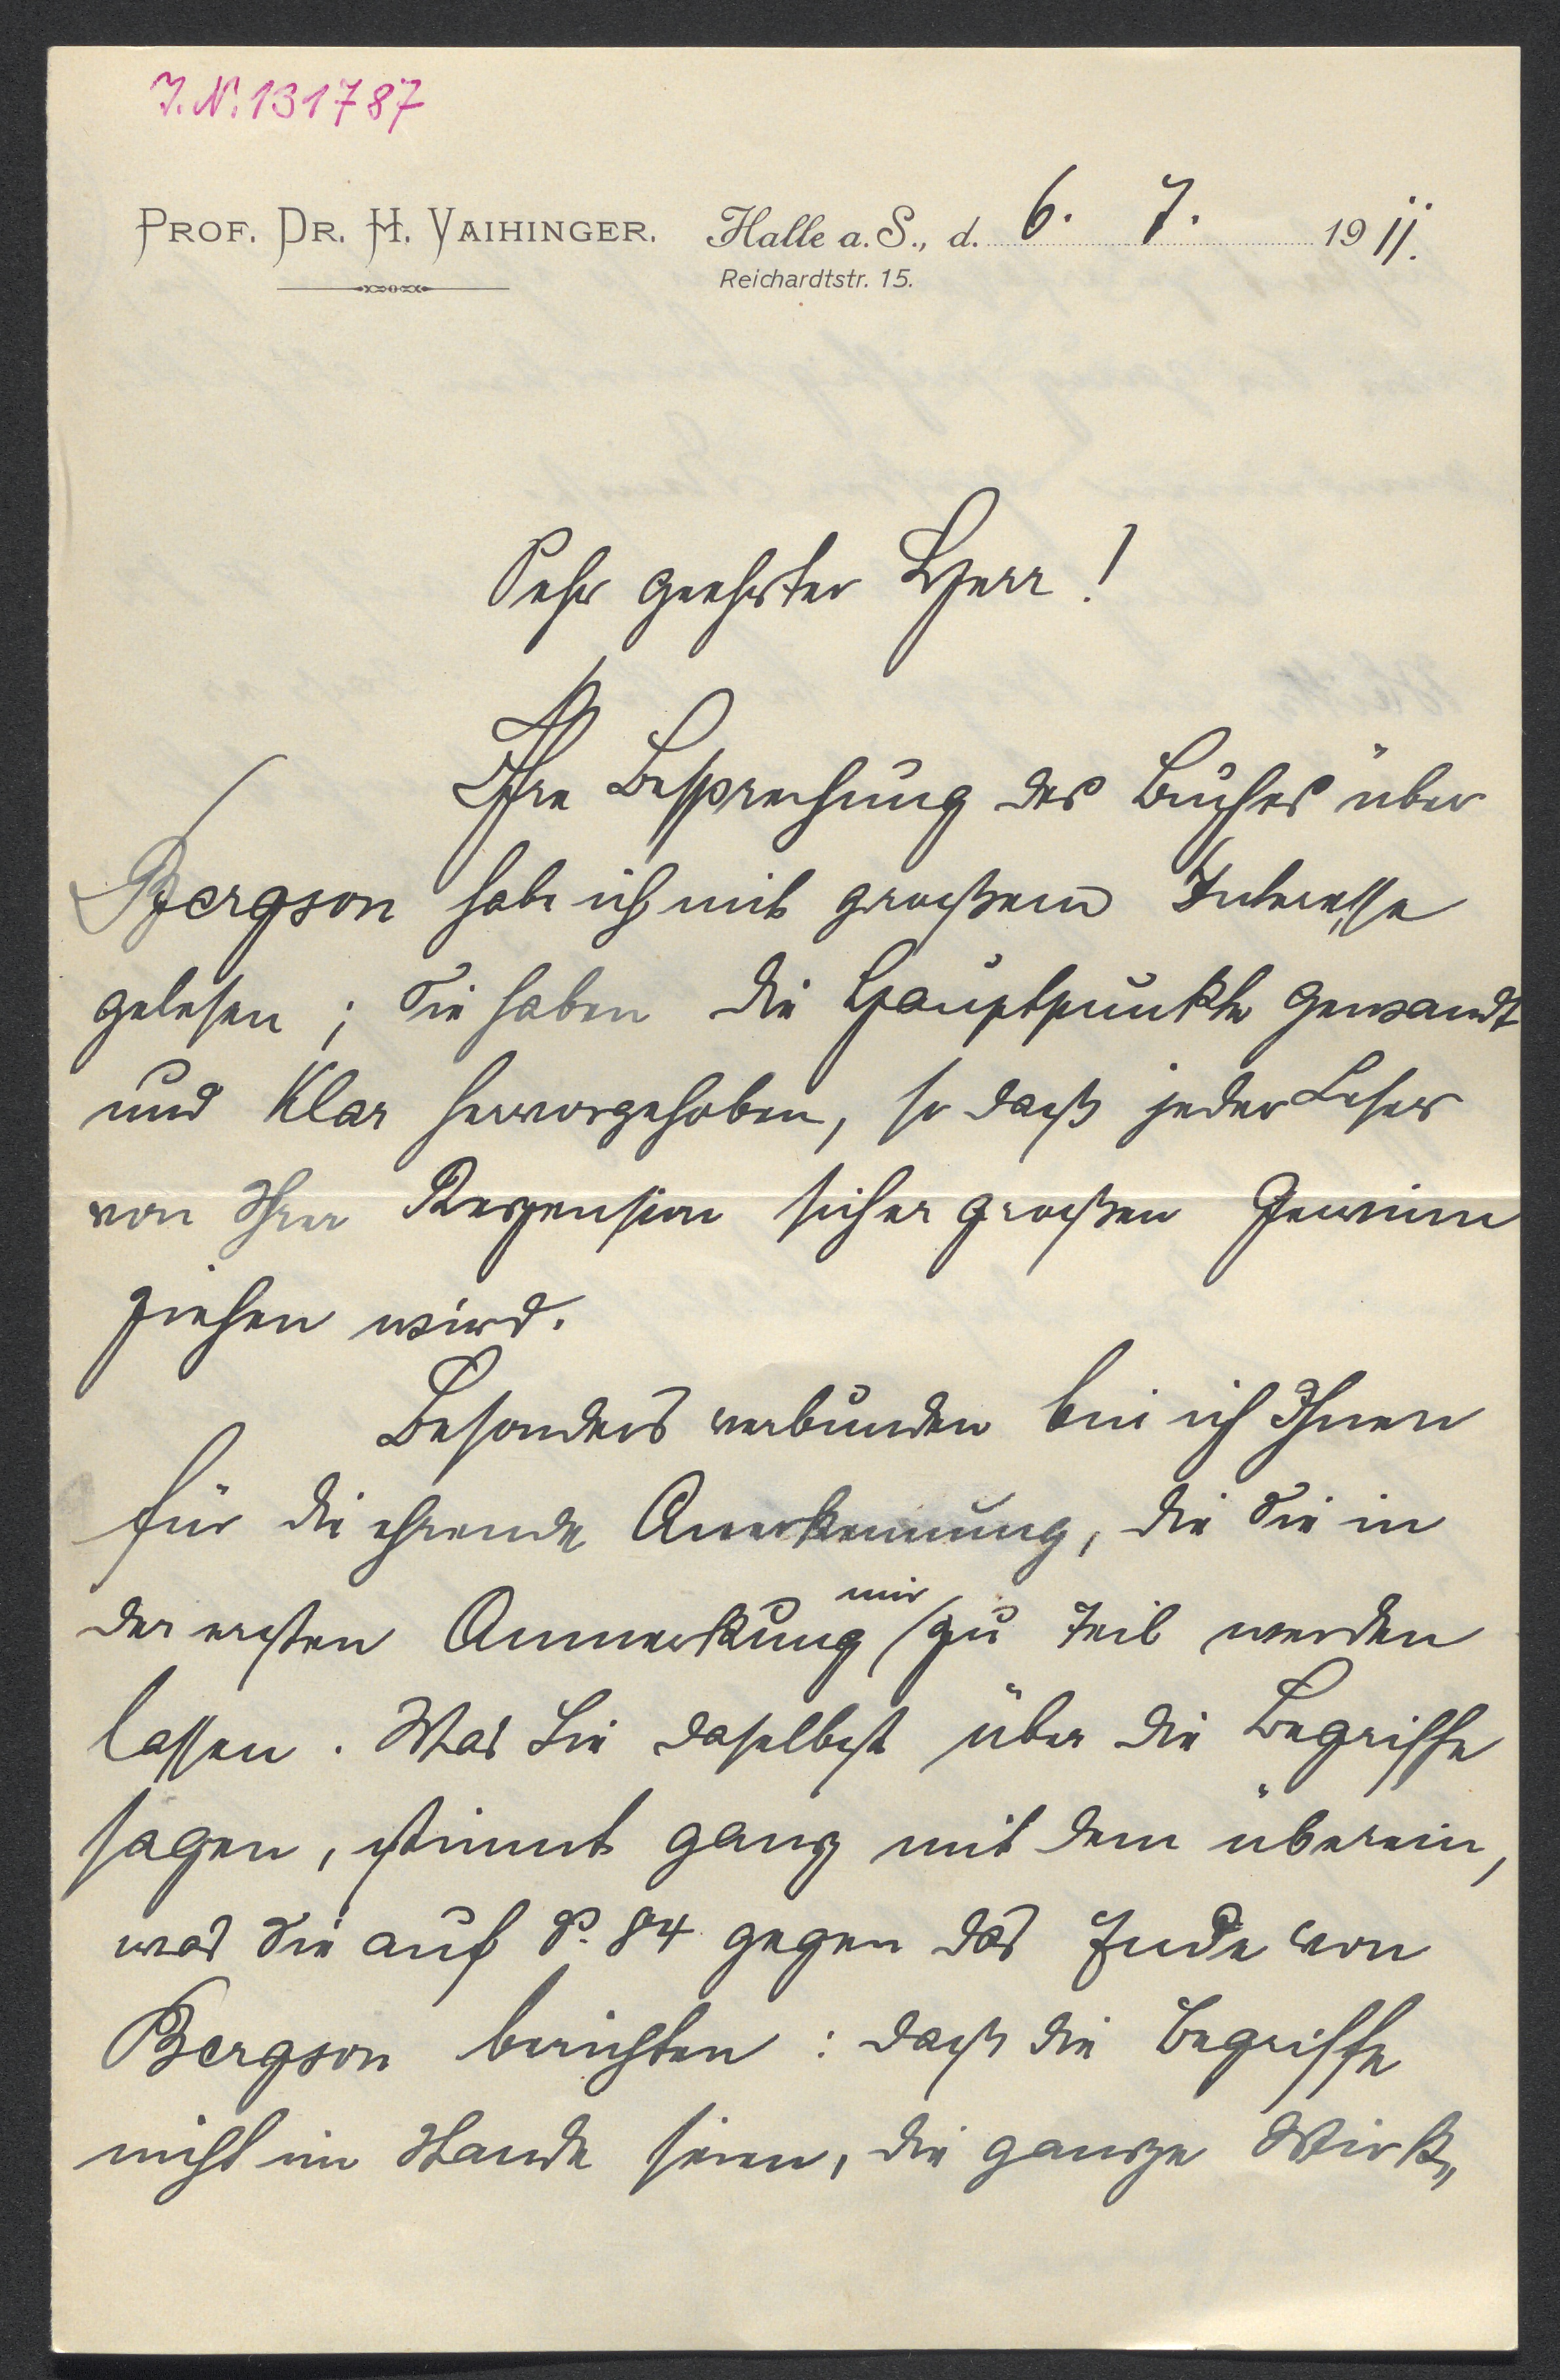 J. N. 131787
PROF. DR. H. VAIHINGER. Halle a. S., d. 6. 7. 1911.
Reichardtstr. 15.
Sehr geehrter Herr!
Ihre Besprechung des Buches über
Bergson habe ich mit großem Interesse
gelesen; Sie haben die Hauptpunkte gewandt
und klar hervorgehoben, so daß jeder Leser
von Ihrer Rezension sicher großen Gewinn
ziehen wird.
Besonders verbunden bin ich Ihnen
für die ehrende Anerkennung, die Sie in
der ersten Anmerkung mir zu teil werden
lassen. Was Sie daselbst über die Begriffe
sagen, stimmt ganz mit dem überein,
was Sie auf S. 84 gegen das Ende von
Bergson berichten: daß die Begriffe
nicht im Stande seien, die ganze Wirk„